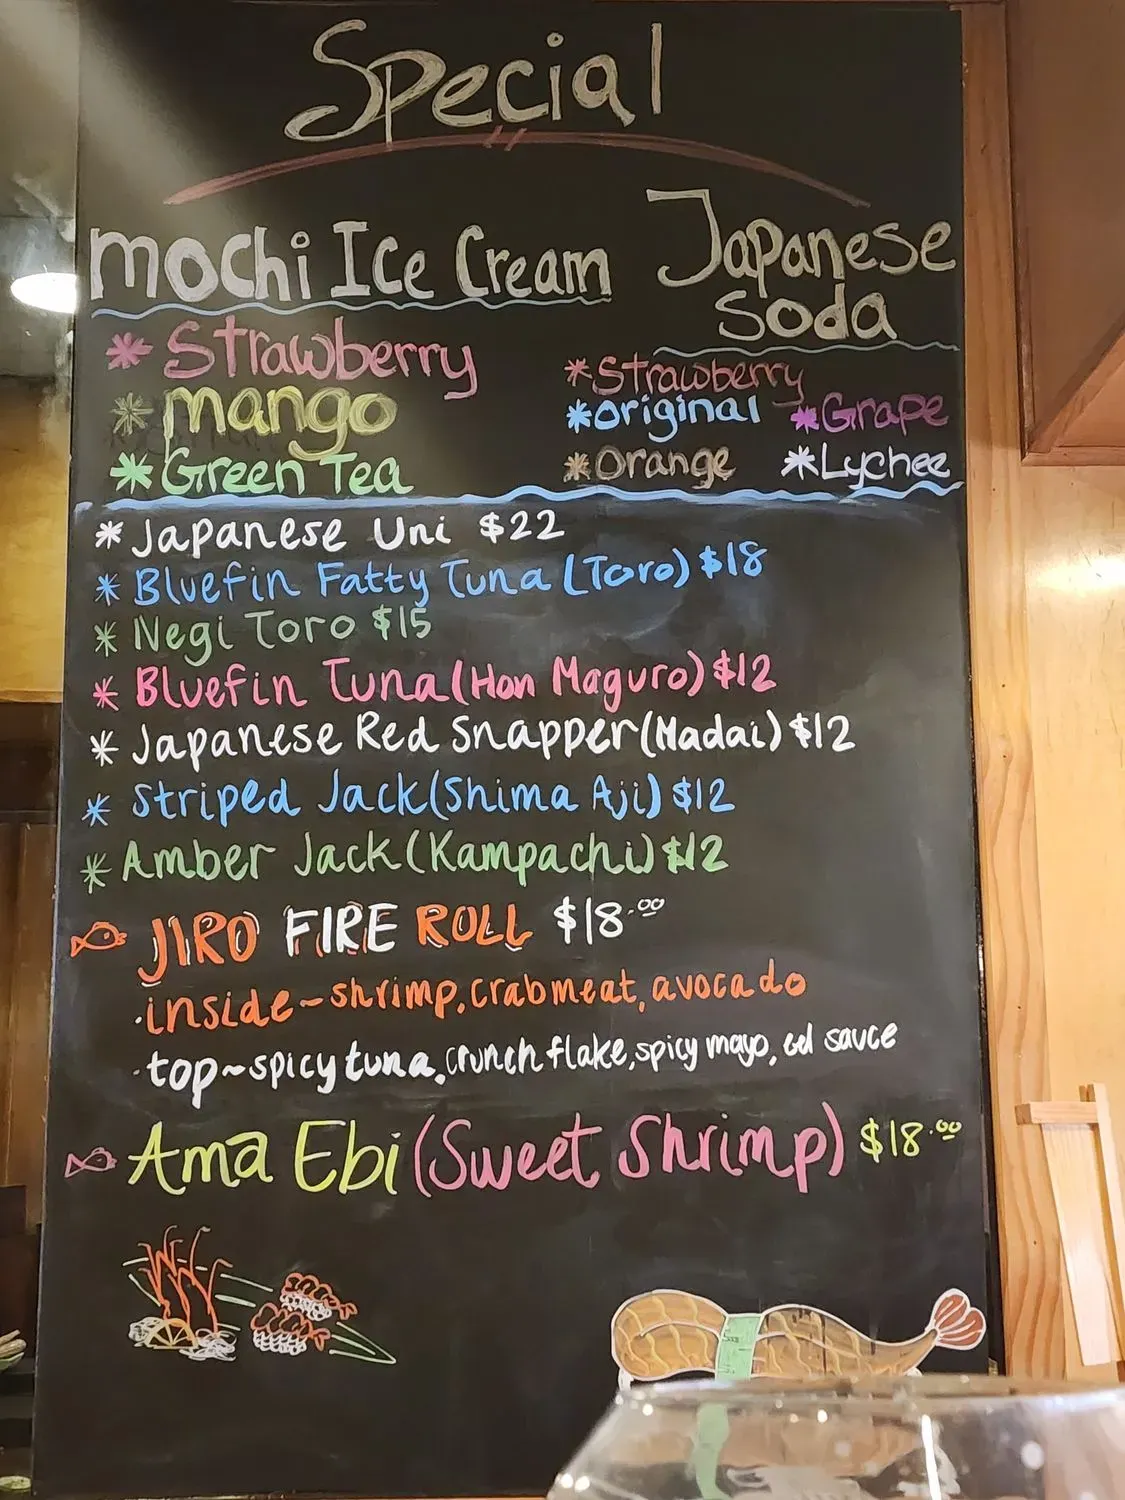 Special
mochi Ice Cream
* Strawberry
* mango
* Green Tea
Japanese
Soda
* Strawberry
* original * Grape
* Orange * Lychee
* Japanese Uni $22
* Bluefin Fatty Tuna (Toro) $18
* Negi Toro $15
* Bluefin Tuna (Hon Maguro) $12
* Japanese Red Snapper (Madai) $12
* Striped Jack (Shima Aji) $12
* Amber Jack (Kampachi) $12
JIRO FIRE ROLL $18.00
·inside~shrimp, crabmeat, avocado
·top~spicy tuna, crunch flake, spicy mayo, eel sauce
Ama Ebi (Sweet Shrimp) $18.00